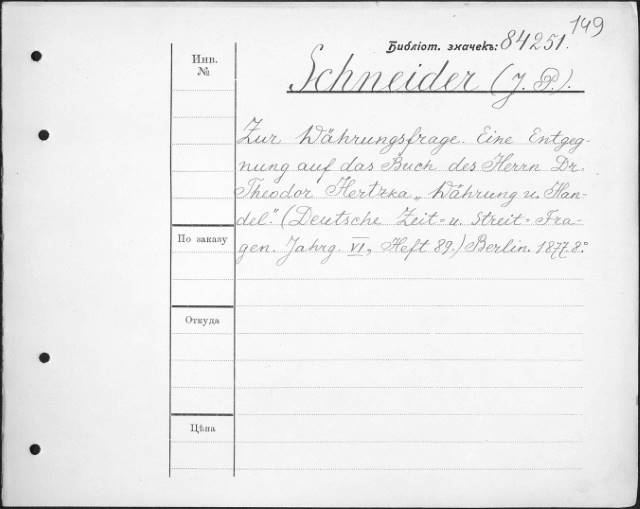 149
Библіот. значекъ: 84251.
Инв. №
Schneider (J. P.).
Zur Währungsfrage. Eine Entgeg-
nung auf das Buch des Herrn Dr.
Theodor Hertzka „Währung u. Han-
del." (Deutsche Zeit= u. Streit=Fra-
По заказу
gen. Jahrg. VI, Heft 89.) Berlin. 1877. 8.°
Откуда
Цѣна